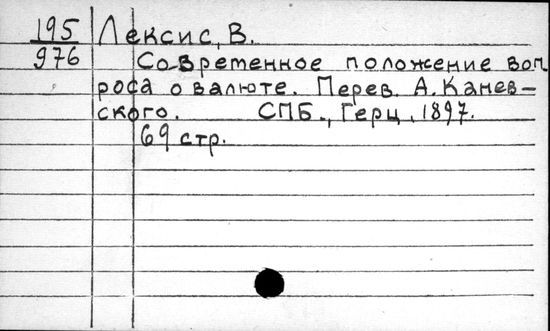 195 Лексис, В.
976 Современное положение воп
роса о валюте. Перев. А. Канев-
ского. СПБ., Герц, 1897.
69 стр.